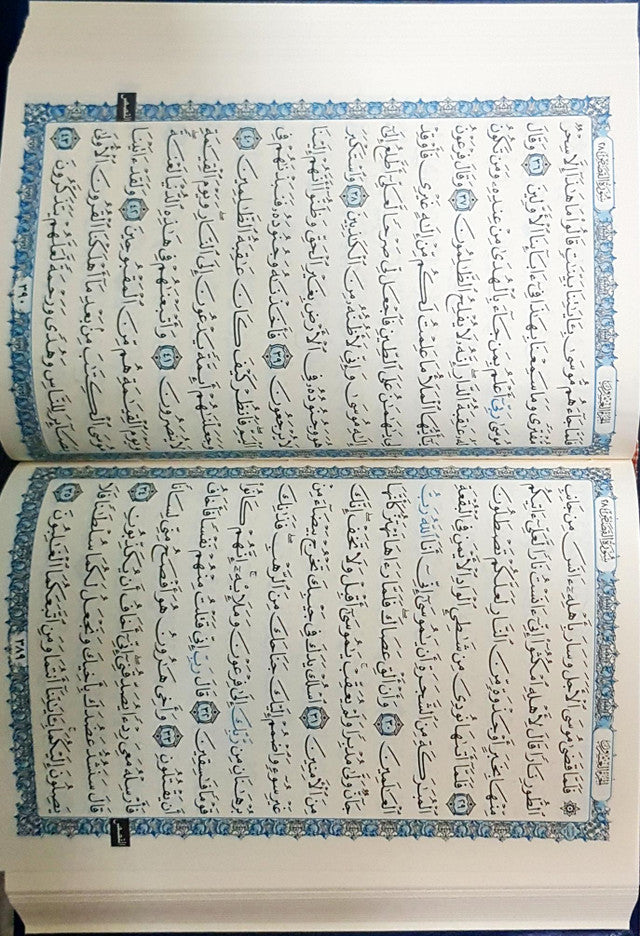 الجزء العشرون
سورة القصص ٢٨
۞ فَلَمَّا قَضَىٰ مُوسَى ٱلْأَجَلَ وَسَارَ بِأَهْلِهِۦٓ ءَانَسَ مِن جَانِبِ
ٱلطُّورِ نَارًا قَالَ لِأَهْلِهِ ٱمْكُثُوٓا۟ إِنِّىٓ ءَانَسْتُ نَارًا لَّعَلِّىٓ ءَاتِيكُم
مِّنْهَا بِخَبَرٍ أَوْ جَذْوَةٍ مِّنَ ٱلنَّارِ لَعَلَّكُمْ تَصْطَلُونَ
٢٩ فَلَمَّآ أَتَىٰهَا نُودِىَ مِن شَٰطِئِ ٱلْوَادِ ٱلْأَيْمَنِ فِى ٱلْبُقْعَةِ
ٱلْمُبَٰرَكَةِ مِنَ ٱلشَّجَرَةِ أَن يَٰمُوسَىٰٓ إِنِّىٓ أَنَا ٱللَّهُ رَبُّ
ٱلْعَٰلَمِينَ ٣٠ وَأَنْ أَلْقِ عَصَاكَ ۖ فَلَمَّا رَءَاهَا تَهْتَزُّ كَأَنَّهَا
جَآنٌّ وَلَّىٰ مُدْبِرًا وَلَمْ يُعَقِّبْ ۚ يَٰمُوسَىٰٓ أَقْبِلْ وَلَا تَخَفْ ۖ إِنَّكَ
مِنَ ٱلْءَامِنِينَ ٣١ ٱسْلُكْ يَدَكَ فِى جَيْبِكَ تَخْرُجْ بَيْضَآءَ مِنْ
غَيْرِ سُوٓءٍ وَٱضْمُمْ إِلَيْكَ جَنَاحَكَ مِنَ ٱلرَّهْبِ ۖ فَذَٰنِكَ
بُرْهَٰنَانِ مِن رَّبِّكَ إِلَىٰ فِرْعَوْنَ وَمَلَإِي۟هِۦٓ ۚ إِنَّهُمْ كَانُوا۟
قَوْمًا فَٰسِقِينَ ٣٢ قَالَ رَبِّ إِنِّى قَتَلْتُ مِنْهُمْ نَفْسًا فَأَخَافُ
أَن يَقْتُلُونِ ٣٣ وَأَخِى هَٰرُونُ هُوَ أَفْصَحُ مِنِّى لِسَانًا
فَأَرْسِلْهُ مَعِىَ رِدْءًا يُصَدِّقُنِىٓ ۖ إِنِّىٓ أَخَافُ أَن يُكَذِّبُونِ ٣٤
قَالَ سَنَشُدُّ عَضُدَكَ بِأَخِيكَ وَنَجْعَلُ لَكُمَا سُلْطَٰنًا فَلَا
يَصِلُونَ إِلَيْكُمَا ۚ بِـَٔايَٰتِنَآ أَنتُمَا وَمَنِ ٱتَّبَعَكُمَا ٱلْغَٰلِبُونَ ٣٥
القصص
٣٨٩
الجزء العشرون
سورة القصص ٢٨
فَلَمَّا جَآءَهُم مُّوسَىٰ بِـَٔايَٰتِنَا بَيِّنَٰتٍ قَالُوا۟ مَا هَٰذَآ إِلَّا سِحْرٌ
مُّفْتَرًى وَمَا سَمِعْنَا بِهَٰذَا فِىٓ ءَابَآئِنَا ٱلْأَوَّلِينَ ٣٦ وَقَالَ
مُوسَىٰ رَبِّىٓ أَعْلَمُ بِمَن جَآءَ بِٱلْهُدَىٰ مِنْ عِندِهِۦ وَمَن تَكُونُ
لَهُۥ عَٰقِبَةُ ٱلدَّارِ ۖ إِنَّهُۥ لَا يُفْلِحُ ٱلظَّٰلِمُونَ ٣٧ وَقَالَ فِرْعَوْنُ
يَٰٓأَيُّهَا ٱلْمَلَأُ مَا عَلِمْتُ لَكُم مِّنْ إِلَٰهٍ غَيْرِى فَأَوْقِدْ
لِى يَٰهَٰمَٰنُ عَلَى ٱلطِّينِ فَٱجْعَل لِّى صَرْحًا لَّعَلِّىٓ أَطَّلِعُ إِلَىٰٓ
إِلَٰهِ مُوسَىٰ وَإِنِّى لَأَظُنُّهُۥ مِنَ ٱلْكَٰذِبِينَ ٣٨ وَٱسْتَكْبَرَ
هُوَ وَجُنُودُهُۥ فِى ٱلْأَرْضِ بِغَيْرِ ٱلْحَقِّ وَظَنُّوٓا۟ أَنَّهُمْ إِلَيْنَا
لَا يُرْجَعُونَ ٣٩ فَأَخَذْنَٰهُ وَجُنُودَهُۥ فَنَبَذْنَٰهُمْ فِى
ٱلْيَمِّ ۖ فَٱنظُرْ كَيْفَ كَانَ عَٰقِبَةُ ٱلظَّٰلِمِينَ ٤٠
وَجَعَلْنَٰهُمْ أَئِمَّةً يَدْعُونَ إِلَى ٱلنَّارِ ۖ وَيَوْمَ ٱلْقِيَٰمَةِ
لَا يُنصَرُونَ ٤١ وَأَتْبَعْنَٰهُمْ فِى هَٰذِهِ ٱلدُّنْيَا لَعْنَةً ۖ
وَيَوْمَ ٱلْقِيَٰمَةِ هُم مِّنَ ٱلْمَقْبُوحِينَ ٤٢ وَلَقَدْ ءَاتَيْنَا
مُوسَى ٱلْكِتَٰبَ مِنۢ بَعْدِ مَآ أَهْلَكْنَا ٱلْقُرُونَ ٱلْأُولَىٰ
بَصَآئِرَ لِلنَّاسِ وَهُدًى وَرَحْمَةً لَّعَلَّهُمْ يَتَذَكَّرُونَ ٤٣
القصص
٣٩٠